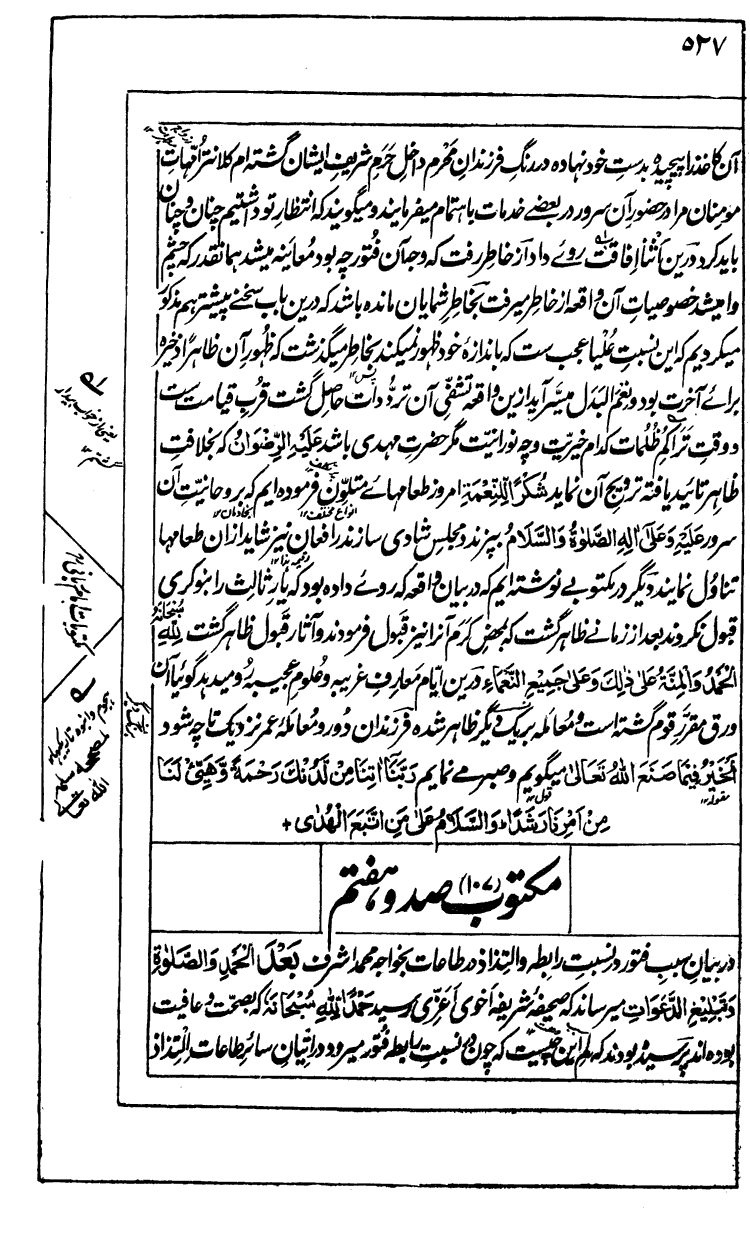 ۵۲۷
آن کاغذ را پیچیده بدست خود نهاده در رنگِ فرزندانِ محرم داخلِ حرمِ شریفِ ایشان گشته ام کلانتر اُمّهاتِ
مؤمنان مرا در حضورِ آن سرور در بعضے خدمات باہتمام میفرمایند و میگویند که انتظارِ تو داشتیم چنان و چنان
باید کرد درین اثنا افاقت روے داد از خاطر رفت که وجه آن فُتور چه بود معاینه میشد همانقدر که چشم
وامیشد خصوصیاتِ آن واقعه از خاطر میرفت بخاطرِ شمایان مانده باشد که درین باب سخنے پیشتر هم مذکور
میکردیم که این نسبتِ عُلیا عجب ست که باندازۀ خود ظهور نمیکند بخاطر میگذشت که ظهورِ آن ظاهرًا ذخیره
برائے آخرت بود و نِعْمَ البدل میسر آید ازین واقعه تشفّیِ آن تردّدات حاصل گشت قربِ قیامت ست
و وقتِ تراکُمِ ظُلمات کدام خیریت و چه نورانیت مگر حضرت مهدی باشد عَلَیْهِ الرِّضْوَانُ که بخلافتِ
ظاهر تائید یافته ترویجِ آن نماید شُکْرًا لِلنِّعْمَةِ امروز طعامهائے متلوّن فرموده ایم که بروحانیتِ آن
سرور عَلَیْهِ وَعَلیٰ اٰلِهِ الصَّلوٰةُ وَالسَّلَامُ بپزند و مجلسِ شادی سازند رافعان نیز شاید ازان طعامها
تناوُل نمایند دیگر در مکتوبے نوشته ایم که در بیانِ واقعه که روے داده بود که یارِ ثالث را بنوکری
قبول نکردند بعد از زمانے ظاهر گشت که بمحضِ کَرَم آنرا نیز قبول فرمودند و آثارِ قبول ظاهر گشت لِلّٰهِ سُبْحَانَهٗ
الْحَمْدُ وَالْمِنَّةُ عَلیٰ ذٰلِكَ وَعَلیٰ جَمِیْعِ النَّعْمَاءِ درین ایّام معارفِ غریبه و علومِ عجیبه رو میدهد گوئیا آن
ورق مقرّرِ قوم گشته است و معامله بریک دیگر ظاهر شده فرزندان دور و معاملۀ عمر نزدیک تا چه شود
اَلْخَیْرُ فِیْمَا صَنَعَ اللّٰهُ تَعَالیٰ میگویم و صبر مے نمایم رَبَّنَا اٰتِنَا مِنْ لَّدُنْكَ رَحْمَةً وَّهَیِّئْ لَنَا
مِنْ اَمْرِنَا رَشَدًا وَالسَّلَامُ عَلیٰ مَنِ اتَّبَعَ الْهُدٰی +
مکتوب (۱۰۷) صد و هفتم
در بیانِ سببِ فتور در نسبتِ رابطه و التذاذ در طاعات بخواجه محمد اشرف بَعْدَ الْحَمْدِ وَالصَّلوٰةِ
وَتَبْلِیْغِ الدَّعَوَاتِ میرساند که صحیفۀ شریفه اخوی اَعَزّی رسید حَمْدًا لِلّٰهِ سُبْحَانَهٗ که بصحّت و عافیت
بوده اند پرسیده بودند که لِمِ این چیست که چون در نسبتِ رابطه فُتور میرود در اِتیانِ سائر طاعات التذاذ
انواع مختلف ۱۲
مقوله ۱۲
یعنی از خواب بیدار
گشتم ۱۲
مکتوبات امام ربانی
هجوم و انبوه